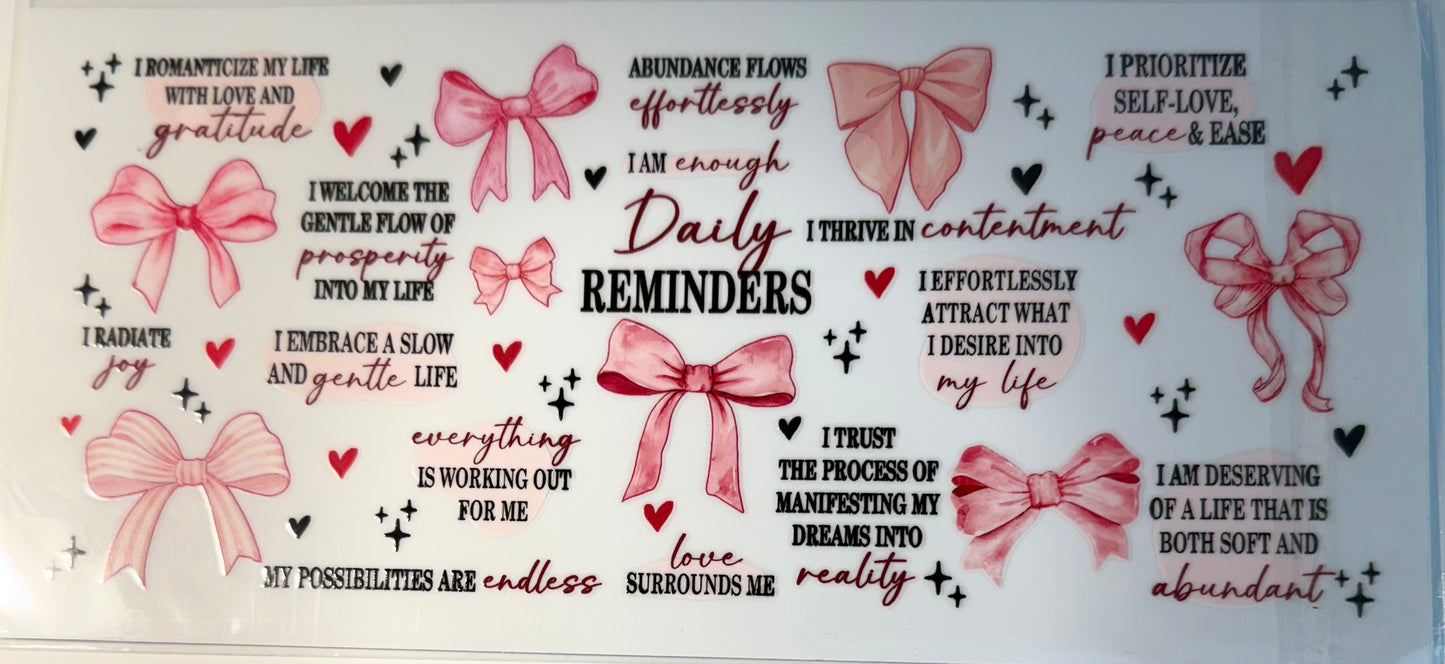 I ROMANTICIZE MY LIFE
WITH LOVE AND
gratitude
ABUNDANCE FLOWS
effortlessly
I PRIORITIZE
SELF-LOVE,
peace & EASE
I AM enough
I WELCOME THE
GENTLE FLOW OF
prosperity
INTO MY LIFE
Daily
REMINDERS
I THRIVE IN contentment
I EFFORTLESSLY
ATTRACT WHAT
I DESIRE INTO
my life
I RADIATE
joy
I EMBRACE A SLOW
AND gentle LIFE
everything
IS WORKING OUT
FOR ME
I TRUST
THE PROCESS OF
MANIFESTING MY
DREAMS INTO
reality
I AM DESERVING
OF A LIFE THAT IS
BOTH SOFT AND
abundant
MY POSSIBILITIES ARE endless
love
SURROUNDS ME